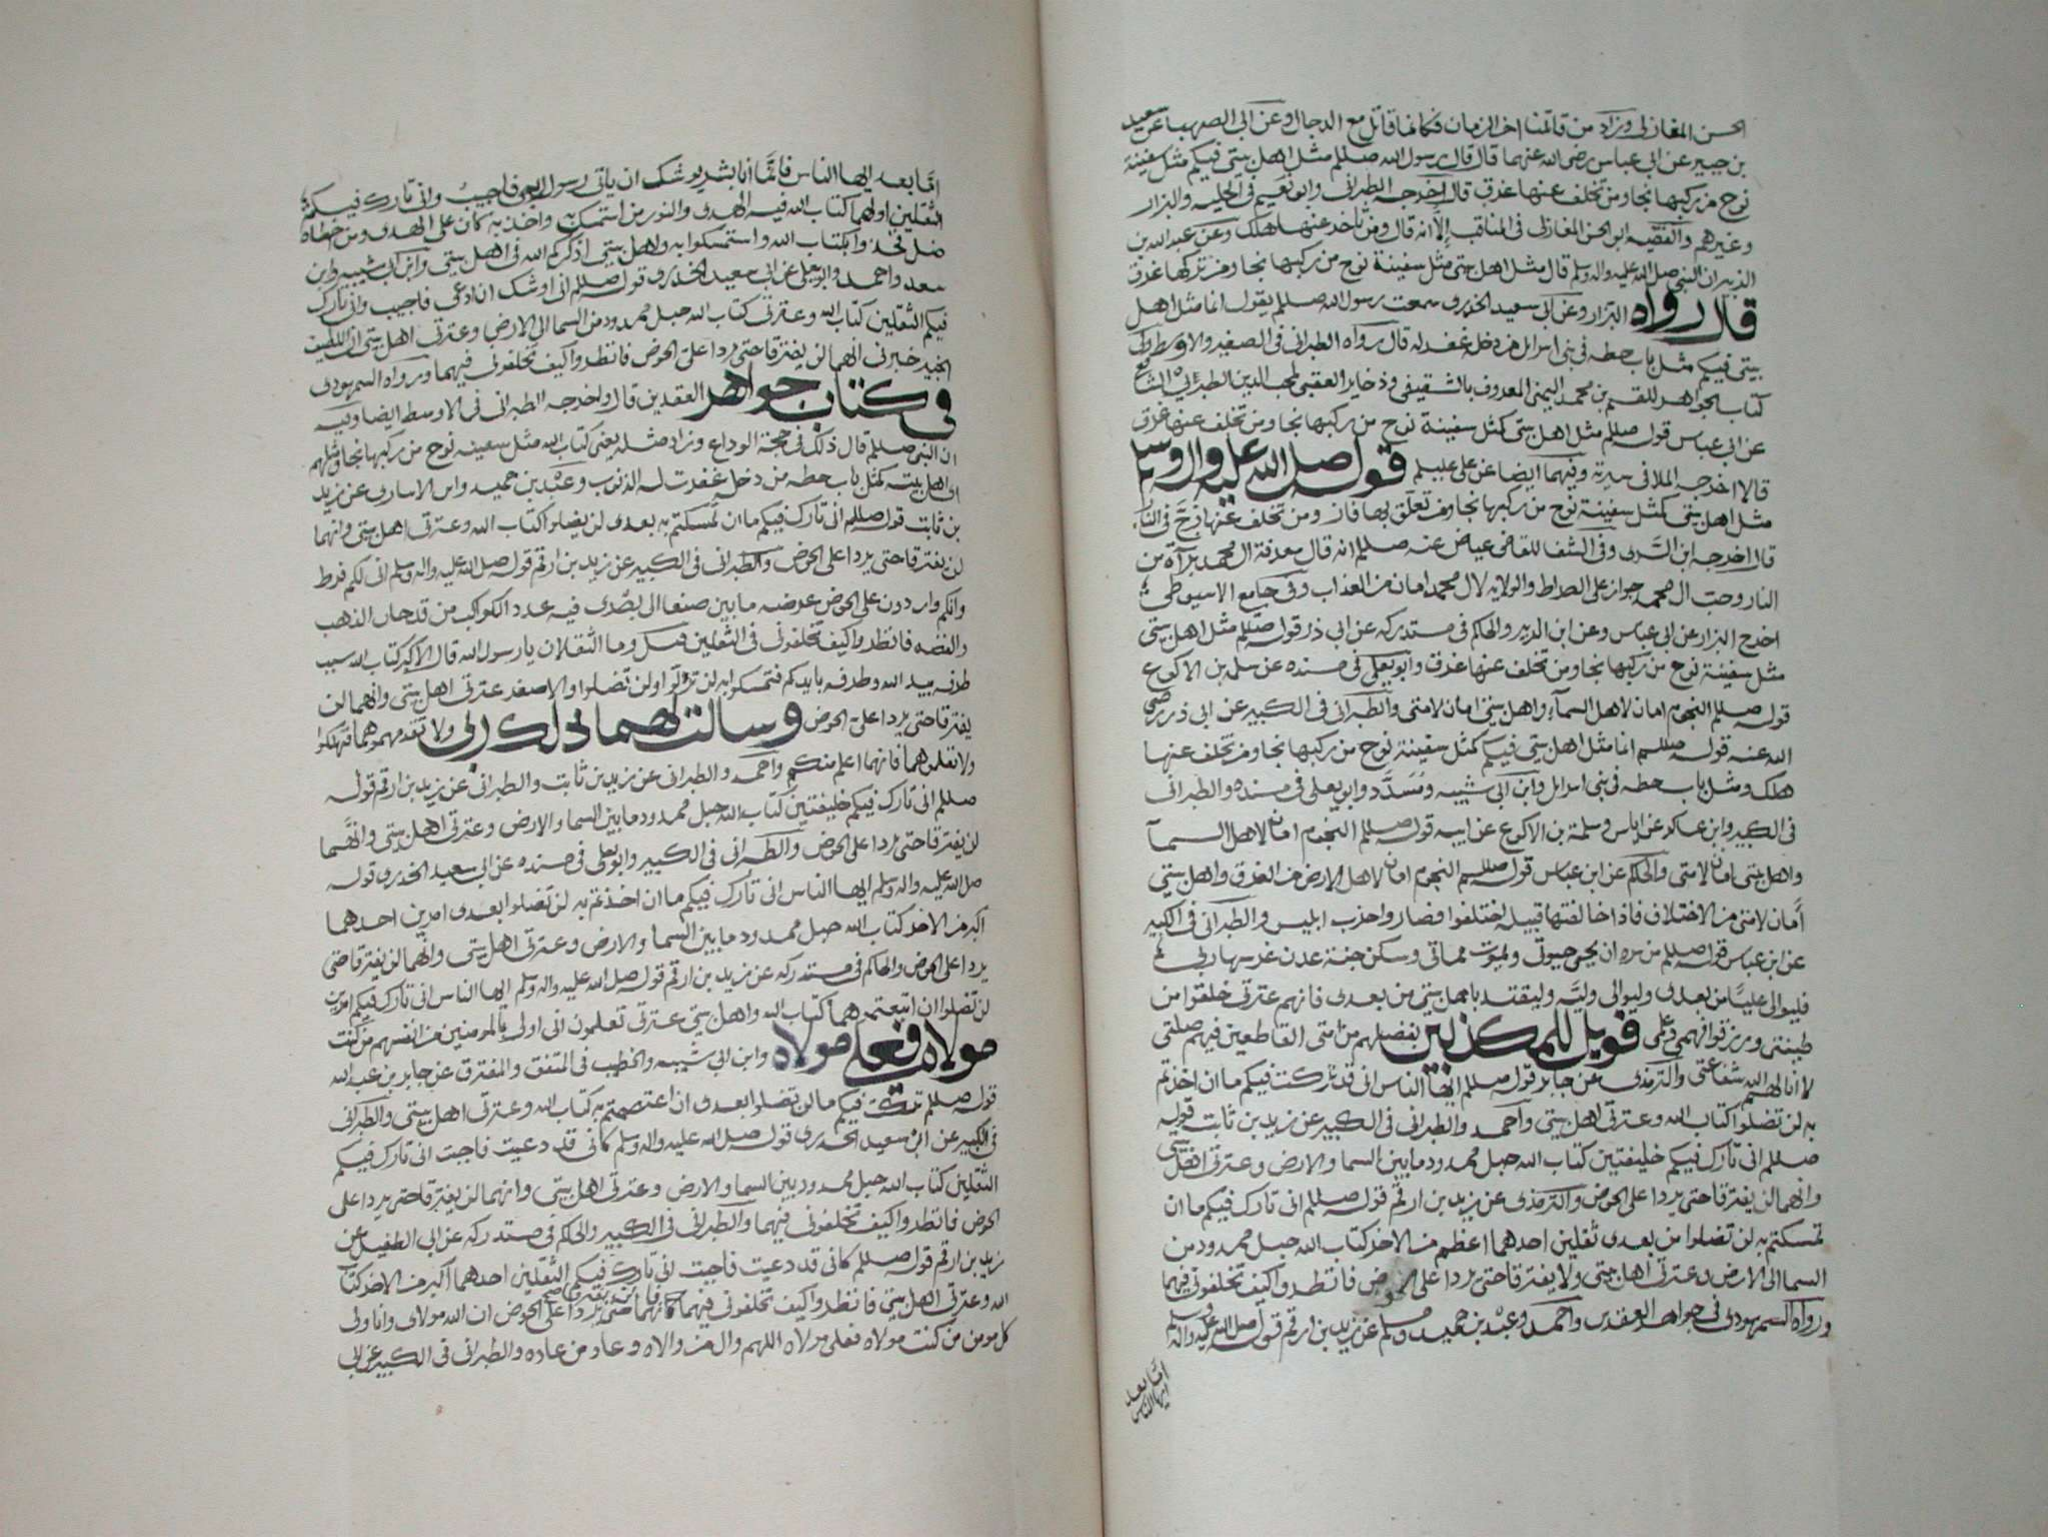 الحسن المغازلى وزاد من قاتلنا اخر الزمان فكانما قاتل مع الدجال وعن ابى الصهبا عن سعيد
بن جبير عن ابى عباس رضى الله عنهما قال قال رسول الله صللم مثل اهل بيتى فيكم مثل سفينة
نوح من ركبها نجا ومن تخلف عنها غرق قال اخرجه الطبرانى وابو نعيم فى الحليه والبزار
وغيرهم والفقيه ابو الحسن المغازلى فى المناقب الا انه قال ومن تاخر عنها هلك وعن عبد الله بن
الزبير ان النبى صلى الله عليه واله وسلم قال مثل اهل بيتى مثل سفينة نوح من ركبها نجا ومن تركها غرق
قال رواه البزار وعن ابى سعيد الخدرى سمعت رسول الله صللم يقول انما مثل اهل
بيتى فيكم مثل باب حطه فى بنى اسرايل من دخل غفر له قال رواه الطبرانى فى الصغير والاوسط وفى
كتاب الجواهر للقسم بن محمد اليمنى المعروف بالشقيفى وذخاير العقبى لمحب الدين الطبرى الشافعى
عن ابى عباس قوله صللم مثل اهل بيتى كمثل سفينة نوح من ركبها نجا ومن تخلف عنها غرق
قالا اخرجه الملا فى سيرته وفيهما ايضا عن على عليلم قوله صلى الله عليه واله وسلم
مثل اهل بيتى كمثل سفينة نوح من ركبها نجا ومن تعلق بها فاز ومن تخلف عنها زج فى النار
قالا اخرجه ابن السرى وفى الشفا للقاضى عياض عنه صللم انه قال معرفة ال محمد برآة من
النار وحب ال محمد جواز على الصراط والولايه لال محمد امان من العذاب وفى جامع الاسيوطى
اخرج البزار عن ابى عباس وعن ابن الزبير والحاكم فى مستدركه عن ابى ذر قوله صللم مثل اهل بيتى
مثل سفينة نوح من ركبها نجا ومن تخلف عنها غرق وابو يعلى فى مسنده عن سلمه بن الاكوع
قوله صللم النجوم امان لاهل السمآء واهل بيتى امان لامتى والطبرانى فى الكبير عن ابى ذر رضى
الله عنه قوله صللم انما مثل اهل بيتى فيكم كمثل سفينة نوح من ركبها نجا ومن تخلف عنها
هلك ومثل باب حطه فى بنى اسرايل وابن ابى شيبه ومسدد وابو يعلى فى مسنده والطبرانى
فى الكبير وابن عساكر عن اياس وسلمة بن الاكوع عن ابيه قوله صللم النجوم امان لاهل السمآ
واهل بيتى امان لامتى والحاكم عن ابن عباس قوله صللم النجوم امان لاهل الارض من الغرق واهل بيتى
امان لامتى من الاختلاف فاذا خالفتها قبيله اختلفوا فصاروا حزب ابليس والطبرانى فى الكبير
عن ابن عباس قوله صللم من سره ان يحيى حيوتى ويموت مماتى وسكن جنة عدن غرسها ربى
فليوالى عليا من بعدى وليوالى وليه وليقتد باهل بيتى من بعدى فانهم عترتى خلقوا من
طينتى ورزقوا فهمى وعلمى فويل للمكذبين بفضلهم من امتى القاطعين فيهم صلتى
لا انالهم الله شفاعتى والترمذى عن جابر قوله صللم ايها الناس انى قد تركت فيكم ما ان اخذتم
به لن تضلوا كتاب الله وعترتى اهل بيتى واحمد والطبرانى فى الكبير عن زيد بن ثابت قوله
صللم انى تارك فيكم خليفتين كتاب الله حبل ممدود ما بين السما والارض وعترتى اهل بيتى
وانهما لن يفترقا حتى يردا على الحوض والترمذى عن زيد بن ارقم قوله صللم انى تارك فيكم ما ان
تمسكتم به لن تضلوا من بعدى ثقلين احدهما اعظم من الاخر كتاب الله حبل ممدود من
السما الى الارض وعترتى اهل بيتى ولا يفترقا حتى يردا على الحوض فانظروا كيف تخلفونى فيهما
ورواه السمهودى فى جواهر العقدين واحمد وعبد بن حميد ومسلم عن زيد بن ارقم قوله صلى الله عليه واله وسلم
اما بعد
ايها الناس
اما بعد ايها الناس فانما انا بشر يوشك ان ياتى رسول ربى فاجيب وانى تارك فيكم
الثقلين اولهما كتاب الله فيه الهدى والنور من استمسك به واخذ به كان على الهدى ومن اخطاه
ضل فخذوا بكتاب الله واستمسكوا به واهل بيتى اذكركم الله فى اهل بيتى وابن ابى شيبه وابن
سعد واحمد وابو يعلى عن ابى سعيد الخدرى قوله صللم انى اوشك ان ادعى فاجيب وانى تارك
فيكم الثقلين كتاب الله وعترتى كتاب الله حبل ممدود من السما الى الارض وعترتى اهل بيتى ان اللطيف
الخبير خبرنى انهما لن يفترقا حتى يردا على الحوض فانظروا كيف تخلفونى فيهما ورواه السمهودى
فى كتاب جواهر العقدين قال واخرجه الطبرانى فى الاوسط ايضا وفيه
ان النبى صللم قال ذلك فى حجة الوداع وزاد مثله يعنى كتاب الله مثل سفينه نوح من ركبها نجا ومثلهم
اى اهل بيته كمثل باب حطه من دخل غفرت له الذنوب وعبد بن حميد وابن الانبارى عن زيد
بن ثابت قوله صللم انى تارك فيكم ما ان تمسكتم به بعدى لن يضلوا كتاب الله وعترتى اهل بيتى وانهما
لن يفترقا حتى يردا على الحوض والطبرانى فى الكبير عن زيد بن ارقم قوله صلى الله عليه واله وسلم انى لكم فرط
وانكم واردون على الحوض عرضه ما بين صنعا الى بصرى فيه عدد الكواكب من قدحان الذهب
والفضه فانظروا كيف تخلفونى فى الثقلين قيل وما الثقلان يا رسول الله قال الاكبر كتاب الله سبب
طرفه بيد الله وطرفه بايديكم فتمسكوا به لن تزلوا ولن تضلوا والاصغر عترتى اهل بيتى وانهما لن
يفترقا حتى يردا على الحوض وسالت لهما ذلك ربى ولا تقدموهما فتهلكوا
ولا تعلموهما فانهما اعلم منكم واحمد والطبرانى عن زيد بن ثابت والطبرانى عن زيد بن ارقم قوله
صللم انى تارك فيكم خليفتين كتاب الله حبل ممدود ما بين السما والارض وعترتى اهل بيتى وانهما
لن يفترقا حتى يردا على الحوض والطبرانى فى الكبير وابو يعلى فى مسنده عن ابى سعيد الخدرى قوله
صلى الله عليه واله وسلم ايها الناس انى تارك فيكم ما ان اخذتم به لن تضلوا بعدى امرين احدهما
اكبر من الاخر كتاب الله حبل ممدود ما بين السما والارض وعترتى اهل بيتى وانهما لن يفترقا حتى
يردا على الحوض والحاكم فى مستدركه عن زيد بن ارقم قوله صلى الله عليه واله وسلم ايها الناس انى تارك فيكم امرين
لن تضلوا ان اتبعتموهما كتاب الله واهل بيتى عترتى تعلمون انى اولى بالمومنين من انفسهم من كنت
مولاه فعلى مولاه وابن ابى شيبه والخطيب فى المتفق والمفترق عن جابر بن عبد الله
قوله صللم تركت فيكم ما لن تضلوا بعدى ان اعتصمتم به كتاب الله وعترتى اهل بيتى والطبرانى
فى الكبير عن ابى سعيد الخدرى قوله صلى الله عليه واله وسلم كانى قد دعيت فاجبت انى تارك فيكم
الثقلين كتاب الله حبل ممدود بين السما والارض وعترتى اهل بيتى وانهما لن يفترقا حتى يردا على
الحوض فانظروا كيف تخلفونى فيهما والطبرانى فى الكبير والحاكم فى مستدركه عن ابى الطفيل عن
زيد بن ارقم قوله صللم كانى قد دعيت فاجبت انى تارك فيكم الثقلين احدهما اكبر من الاخر كتاب
الله وعترتى اهل بيتى فانظروا كيف تخلفونى فيهما فانهما لن يفترقا حتى يردا على الحوض ان الله مولاى وانا ولى
كل مومن من كنت مولاه فعلى مولاه اللهم وال من والاه وعاد من عاده والطبرانى فى الكبير عن ابى